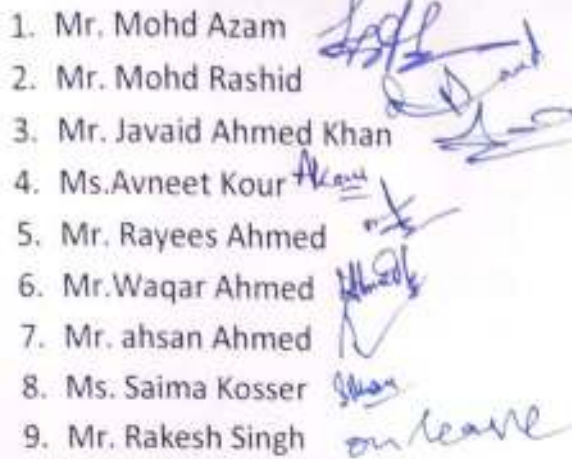 1. Mr. Mohd Azam
2. Mr. Mohd Rashid
3. Mr. Javaid Ahmed Khan
4. Ms.Avneet Kour AKour
5. Mr. Rayees Ahmed
6. Mr.Waqar Ahmed
7. Mr. ahsan Ahmed
8. Ms. Saima Kosser
9. Mr. Rakesh Singh on leave